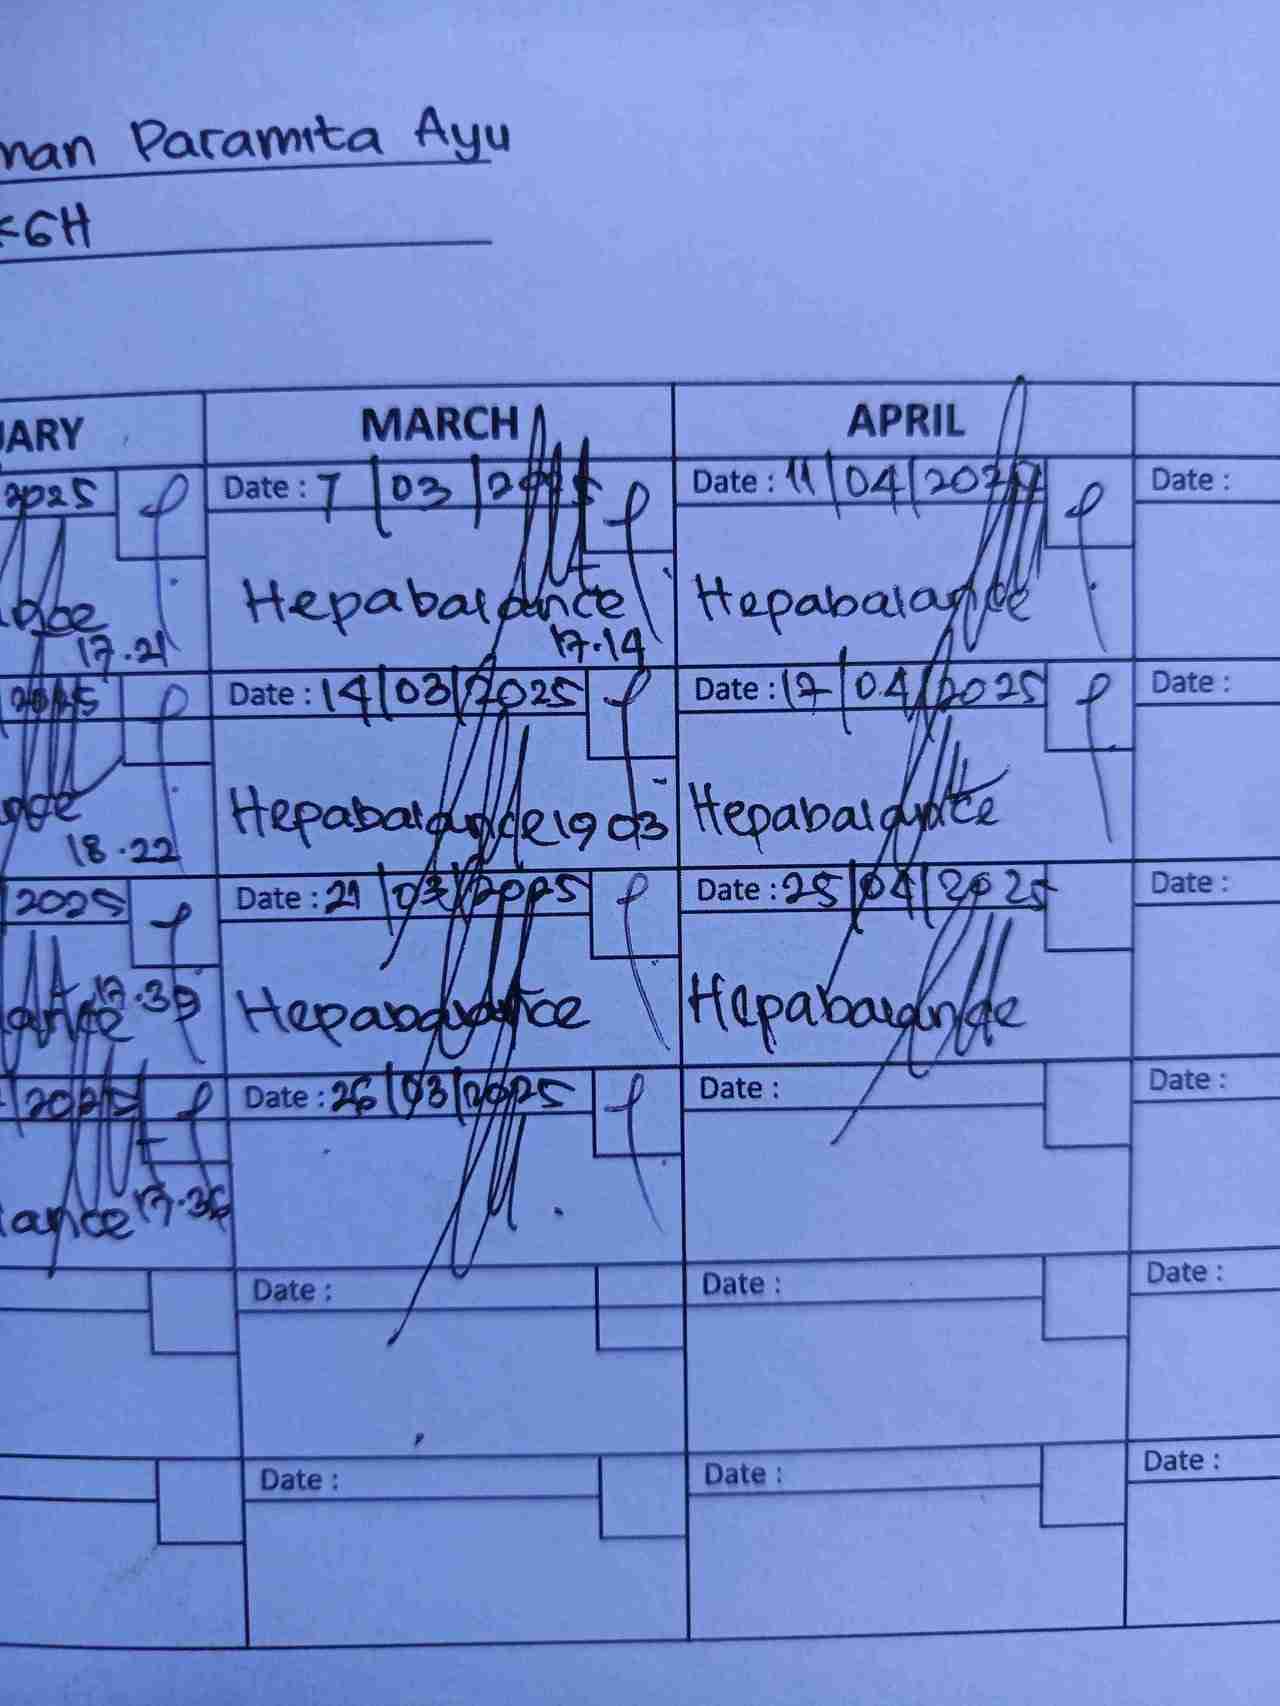 man Paramita Ayu
KGH
UARY MARCH APRIL
2025 Date : 7/03/2025 Date : 11/04/2025 Date :
ance Hepabalance Hepabalance
17.21 17.14
2025 Date : 14/03/2025 Date : 17/04/2025 Date :
ance Hepabalance 19 03 Hepabalance
18.22
2025 Date : 21/03/2025 Date : 25/04/2025 Date :
lance 17.39 Hepabalance Hepabalance
2025 Date : 26/03/2025 Date : Date :
lance 17.36
Date : Date : Date :
Date : Date : Date :